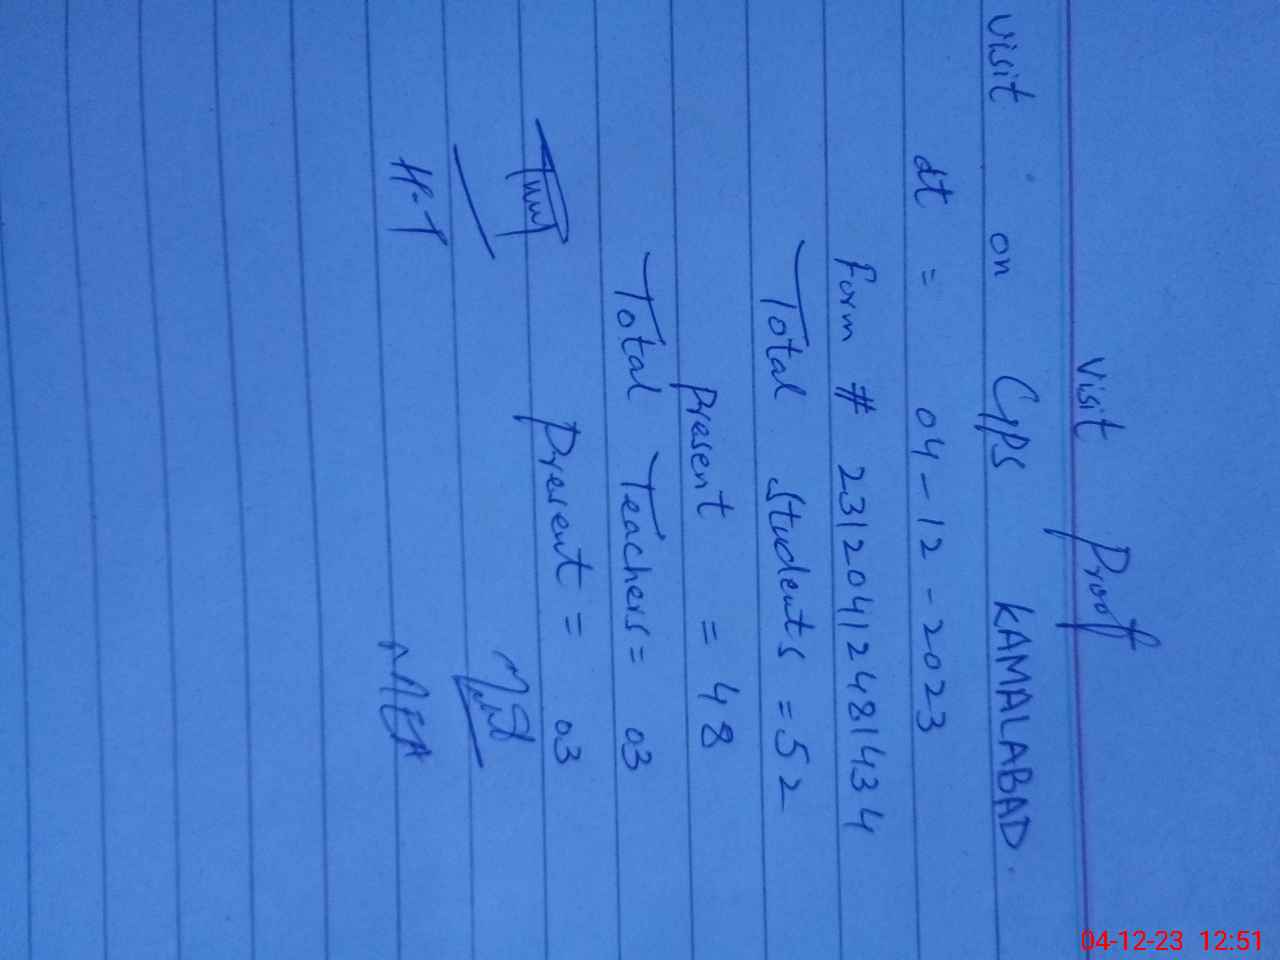 Visit Proof
Visit on GPS KAMALABAD.
dt = 04-12-2023
Form # 23120412481434
Total Students = 52
Present = 48
Total Teachers = 03
Present = 03
H-T
MEA
04-12-23 12:51